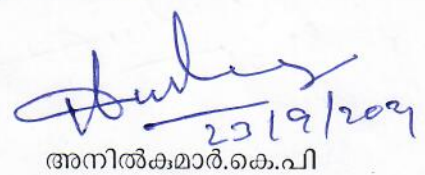 23/9/2021
അനിൽകുമാർ.കെ.പി